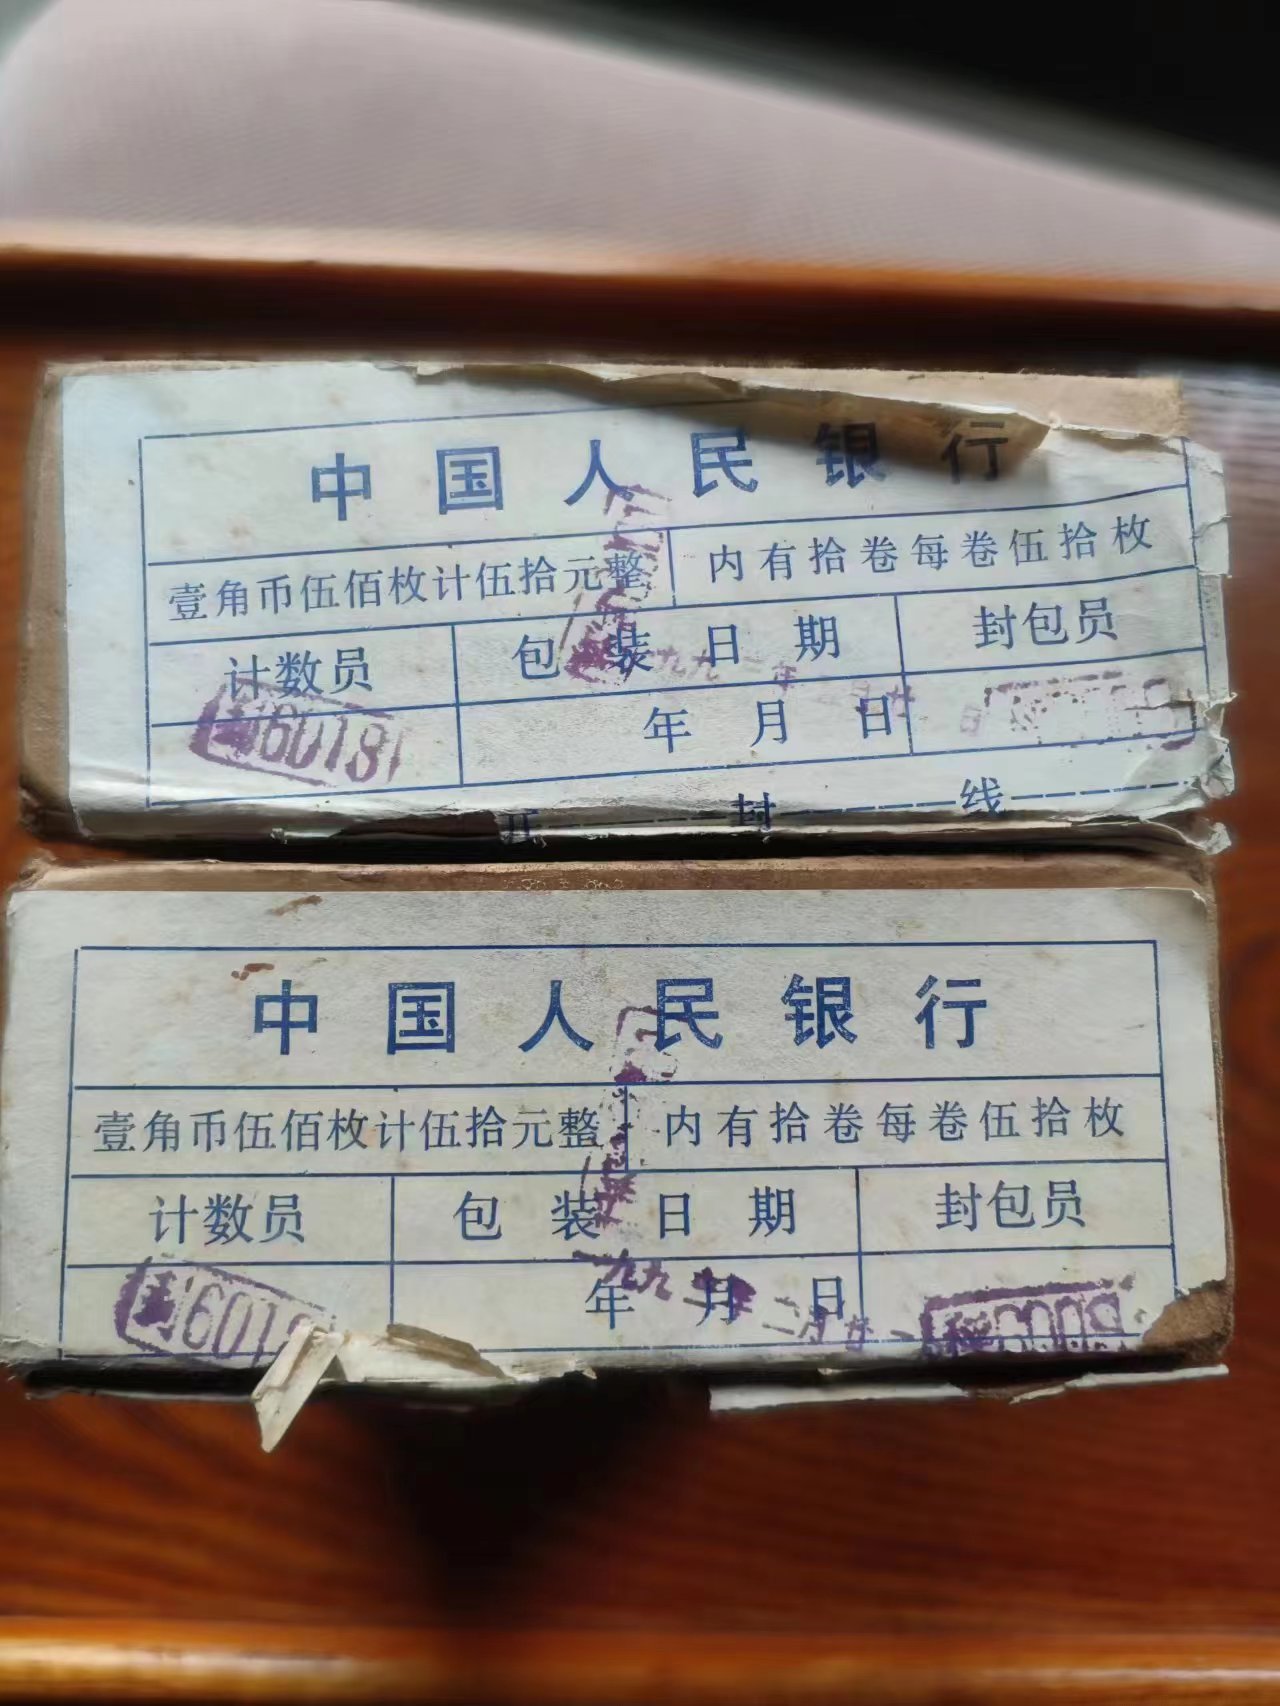 中国人民银行
壹角币伍佰枚计伍拾元整 内有拾卷每卷伍拾枚
计数员 包装日期 封包员
60181 年月日
开封线
中国人民银行
壹角币伍佰枚计伍拾元整 内有拾卷每卷伍拾枚
计数员 包装日期 封包员
年月日